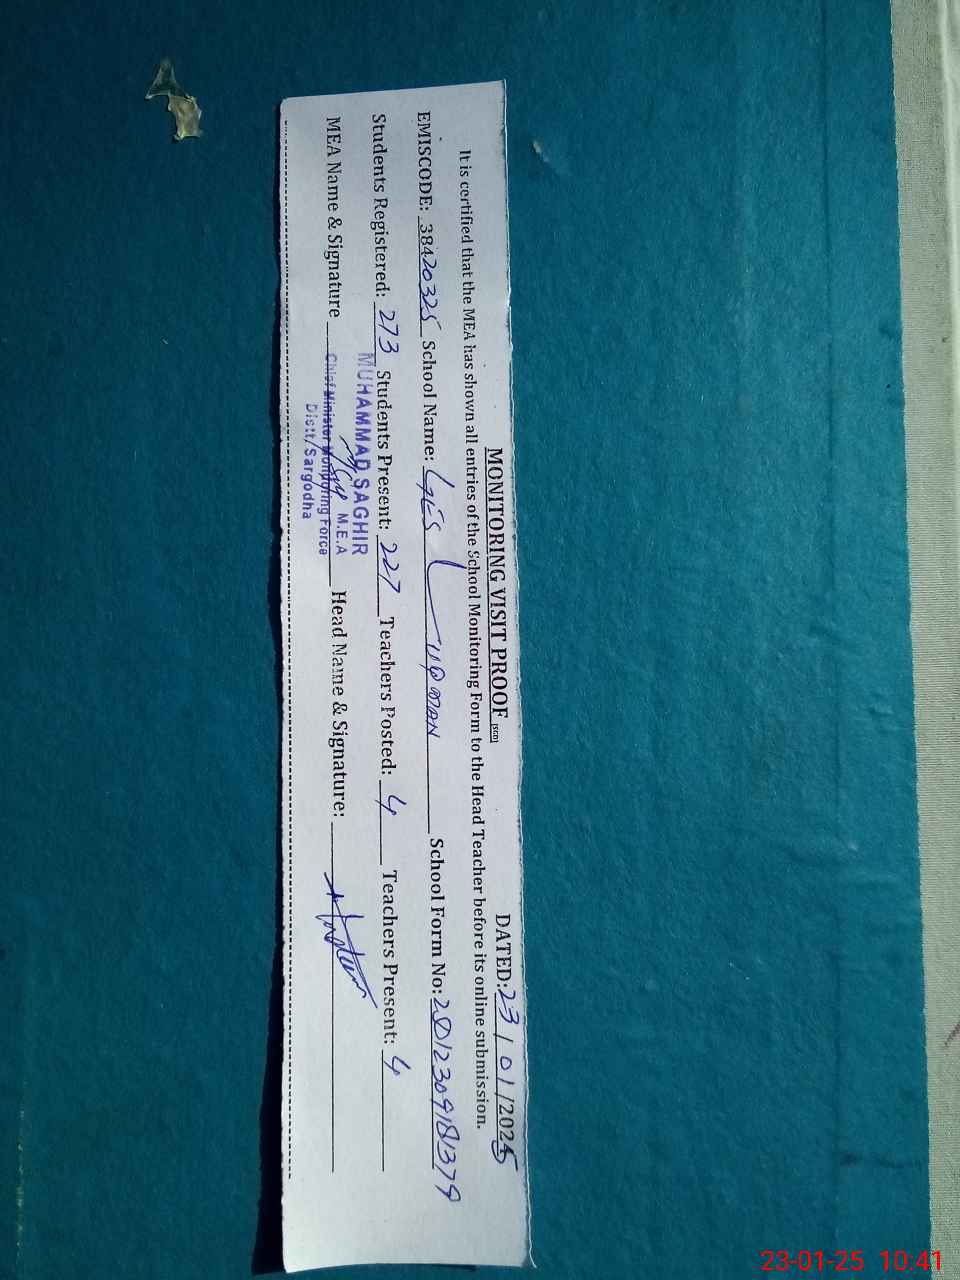 MONITORING VISIT PROOF [SED]
DATED: 23/01/2025
It is certified that the MEA has shown all entries of the School Monitoring Form to the Head Teacher before its online submission.
EMISCODE: 38420325 School Name: GES School Form No:
Students Registered: 273 Students Present: 227 Teachers Posted: 4 Teachers Present: 4
MEA Name & Signature Head Name & Signature:
MUHAMMAD SAGHIR
M.E.A
Chief Minister Monitoring Force
Distt/Sargodha
23-01-25 10:41